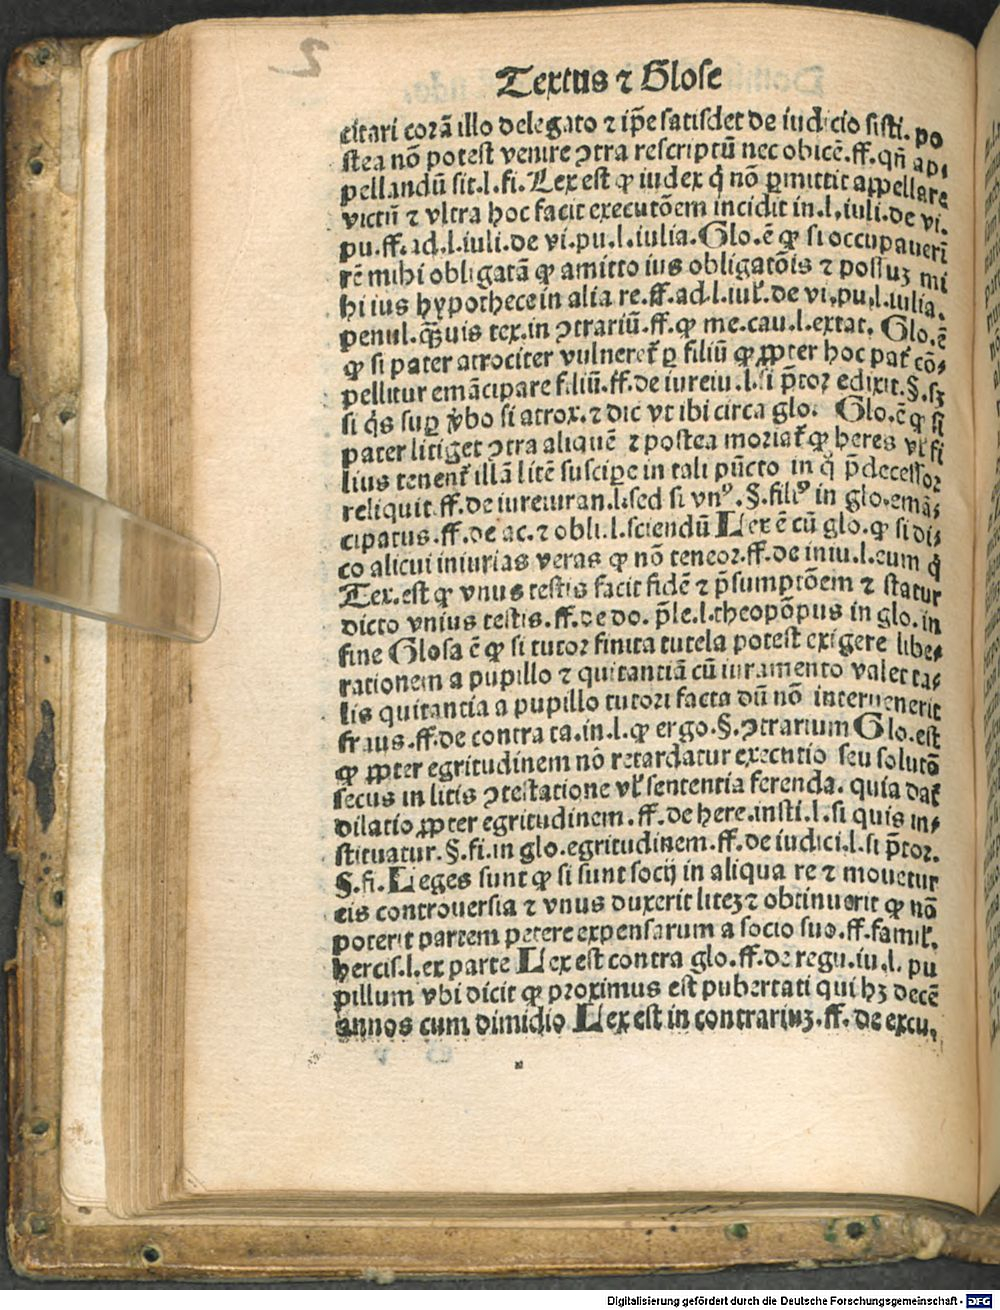 2
Textus ⁊ Glose
citari corā illo delegato ⁊ ip̄e satisdet de iudicio sisti. po
stea nō potest venire ↄtra rescriptū nec obicē.ff.qñ ap⸗
pellandū sit.l.fi. Lex est ꝙ iudex q̇ nō ꝑmittit appellare
victū ⁊ vltra hoc facit executōem incidit in.l.iuli.de vi.
pu.ff.ad.l.iuli.de vi.pu.l.iulia. Glo.ē ꝙ si occupauerī
rē mihi obligatā ꝙ amitto ius obligatōis ⁊ possuꝫ mi
hi ius hypothece in alia re.ff.ad.l.iul̕.de vi.pu.l.iulia.
penul.q̄uis tex.in ↄtrariū.ff.ꝙ me.cau.l.extat. Glo.ē
ꝙ si pater atrociter vulneret̕ ꝑ filiū ꝙ ꝓpter hoc pat̕ cō⸗
pellitur emācipare filiū.ff.de iureiu.l.si p̄tor edixit.§.sꝫ
si q̇s suꝑ v̇bo si atrox.⁊ dic vt ibi circa glo. Glo.ē ꝙ si
pater litiget ↄtra aliquē ⁊ postea moriat̕ ꝙ heres vl̕ fi
lius tenent̕ illā litē suscipe in tali pūcto in q̇ p̄decessor
reliquit.ff.de iureiuran.l.sed si vnꝰ.§.filiꝰ in glo.emā⸗
cipatus.ff.de ac.⁊ obli.l.sciendū Lex ē cū glo.ꝙ si di⸗
co alicui iniurias veras ꝙ nō teneor.ff.de iniu.l.eum q̇
Tex.est ꝙ vnus testis facit fidē ⁊ p̄sumptōem ⁊ statur
dicto vnius testis.ff.de do. p̄le.l.theopōpus in glo.in
fine Glosa ē ꝙ si tutor finita tutela potest exigere libe⸗
rationem a pupillo ⁊ quitantiā cū iuramento valet ta⸗
lis quitantia a pupillo tutori facta dū nō interuenerit
fraus.ff.de contra ta.in.l.ꝙ ergo.§.ↄtrarium Glo.est
ꝙ ꝓpter egritudinem nō retardatur executio seu solutō
secus in litis ↄtestatione vl̕ sententia ferenda. quia dat̕
dilatio ꝓpter egritudinem.ff.de here.insti.l.si quis in⸗
stituatur.§.fi.in glo.egritudinem.ff.de iudici.l.si p̄tor.
§.fi. Leges sunt ꝙ si sunt socij in aliqua re ⁊ mouetur
eis controuersia ⁊ vnus duxerit liteꝫ ⁊ obtinuerit ꝙ nō
poterit partem petere expensarum a socio suo.ff.famil̕.
hercis.l.ex parte Lex est contra glo.ff.de regu.iu.l. pu
pillum vbi dicit ꝙ proximus est pubertati qui hꝫ decē
annos cum dimidio Lex est in contrariuꝫ.ff. de excu.
Digitalisierung gefördert durch die Deutsche Forschungsgemeinschaft - DFG